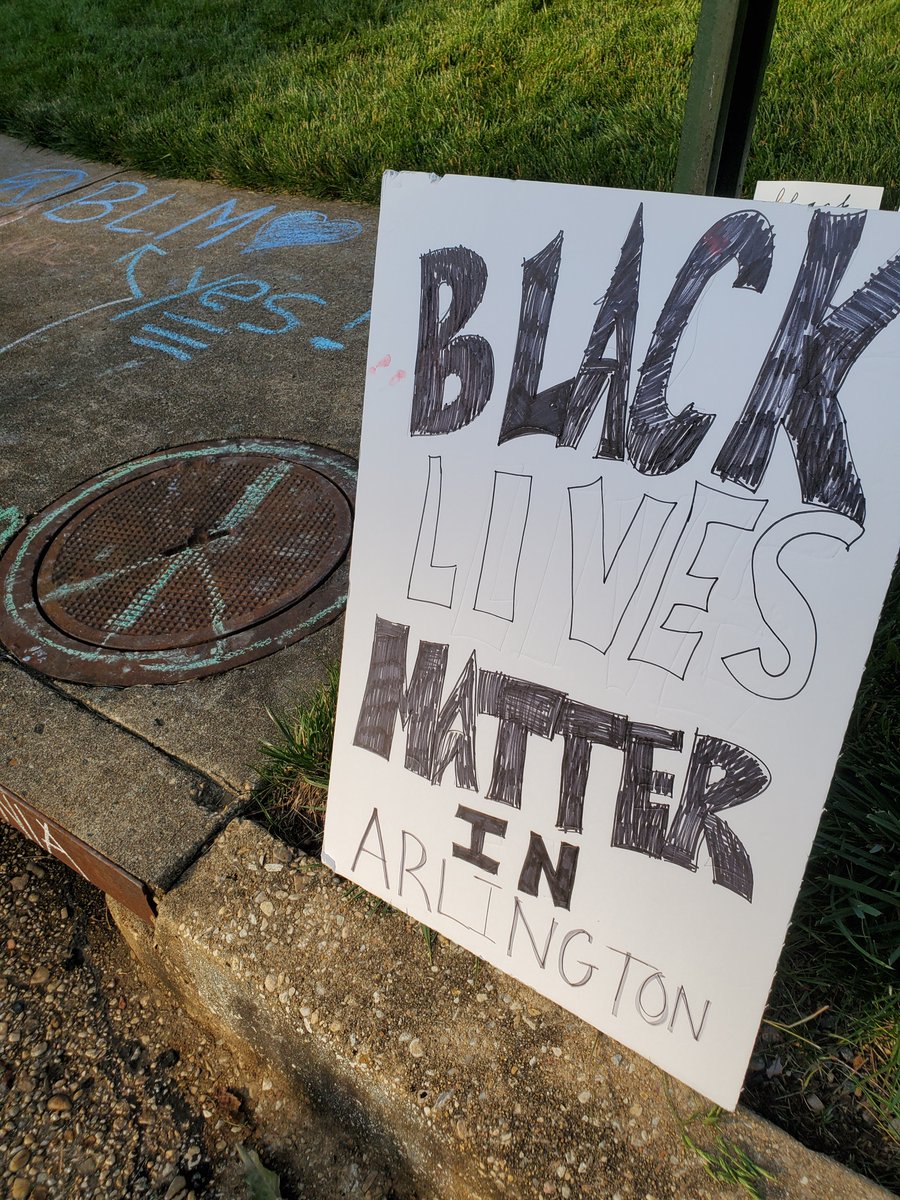 BLACK
LIVES
MATTER
IN
ARLINGTON
BLM
yes!